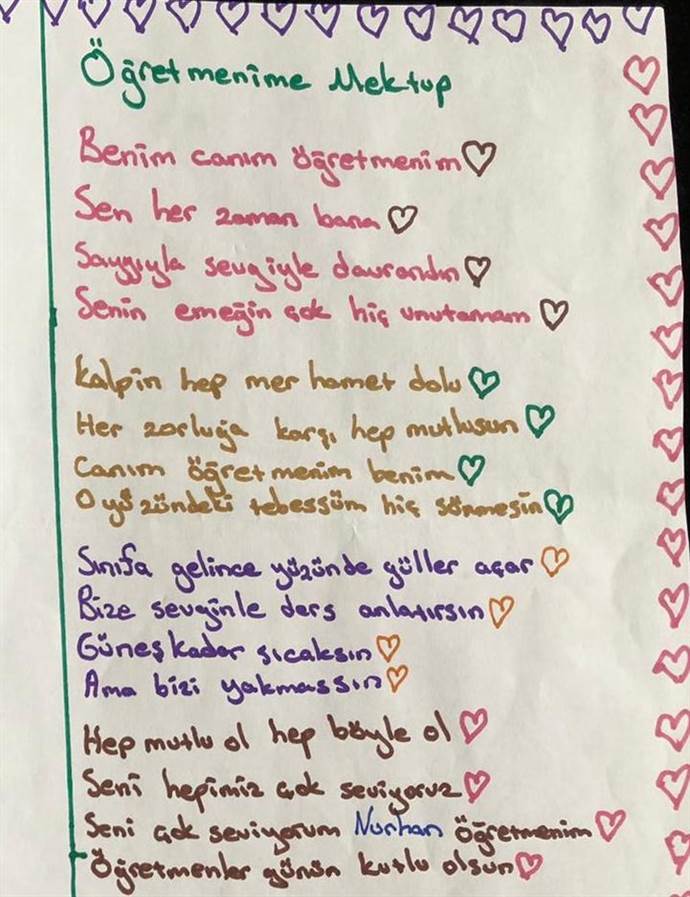 Öğretmenime Mektup
Benim canım öğretmenim
Sen her zaman bana
Saygıyla sevgiyle davrandın
Senin emeğin çok hiç unutamam
Kalpin hep merhamet dolu
Her zorluğa karşı hep mutlusun
Canım öğretmenim benim
O yüzündeki tebessüm hiç sönmesin
Sınıfa gelince yüzünde güller açar
Bize sevginle ders anlatırsın
Güneş kadar sıcaksın
Ama bizi yakmassın
Hep mutlu ol hep böyle ol
Seni hepimiz çok seviyoruz
Seni çok seviyorum Nurhan öğretmenim
Öğretmenler günün kutlu olsun